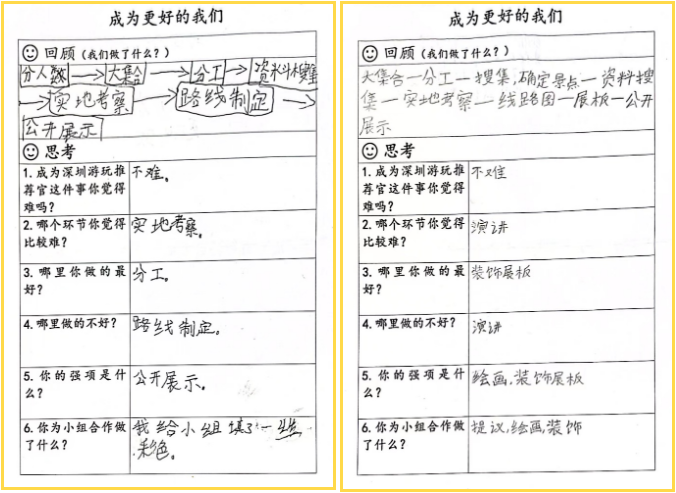 成为更好的我们
回顾（我们做了什么？）
分人数→大集合→分工→资料搜集
→实地考察→路线制定→
公开展示
思考
1. 成为深圳游玩推
荐官这件事你觉得
难吗？
不难。
2. 哪个环节你觉得
比较难？
实地考察。
3. 哪里你做的最
好？
分工。
4. 哪里做的不好？
路线制定。
5. 你的强项是什
么？
公开展示。
6. 你为小组合作做
了什么？
我给小组填了一丝
彩色。
成为更好的我们
回顾（我们做了什么？）
大集合一分工一搜集,确定景点一资料搜
集一实地考察一线路图一展板一公开
展示
思考
1. 成为深圳游玩推
荐官这件事你觉得
难吗？
不难
2. 哪个环节你觉得
比较难？
演讲
3. 哪里你做的最
好？
装饰展板
4. 哪里做的不好？
演讲
5. 你的强项是什
么？
绘画,装饰展板
6. 你为小组合作做
了什么？
提议,绘画,装饰